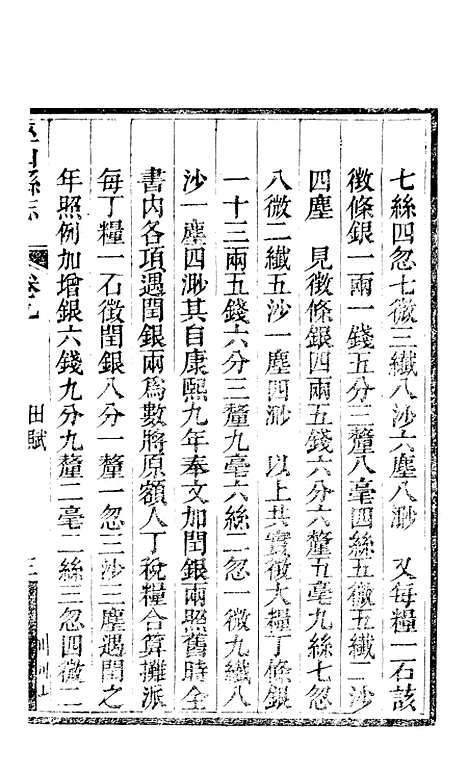 七絲四忽七微三纖八沙六塵八渺　又每糧一石該
徵條銀一兩一錢五分三釐八毫四絲五微五纖二沙
四塵　見徵條銀四兩五錢六分六釐五毫九絲七忽
八微二纖五沙一塵四渺　以上共實徵大糧丁條銀
一十三兩五錢六分三釐九毫六絲二忽一微九纖八
沙一塵四渺其自康熙九年奉文加閏銀兩照舊時全
書內各項遇閏銀兩爲數將原額人丁稅糧合算攤派
每丁糧一石徵閏銀八分一釐一忽三沙三塵遇閏之
年照例加增銀六錢九分九釐二毫二絲三忽四微二
巫山縣志　卷九　田賦